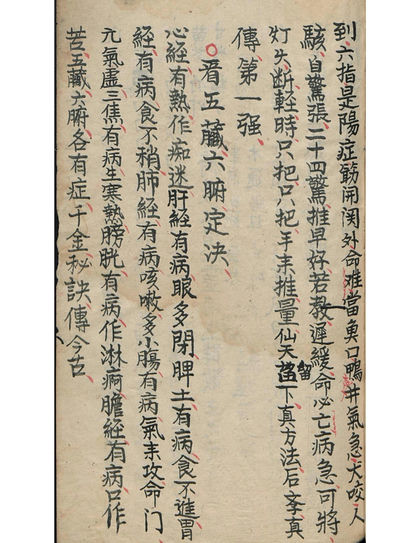 到六指是陽症筋開関外命难當臭口鴨井氣急大咬人
駭自驚張二十四驚推早好若教遲緩命必亡病急可將
灯火断輕時只把只把手来推量仙天留下真方法后李真
傳第一强
看五臟六腑定决
心經有熱作痴迷肝經有病眼多閉脾土有病食不進胃
經有病食不稍肺經有病咳嗽多小腸有病氣来攻命门
元氣虚三焦有病生寒熱膀胱有病作淋疴膽經有病口作
苦五藏六腑各有症千金秘訣傳今古